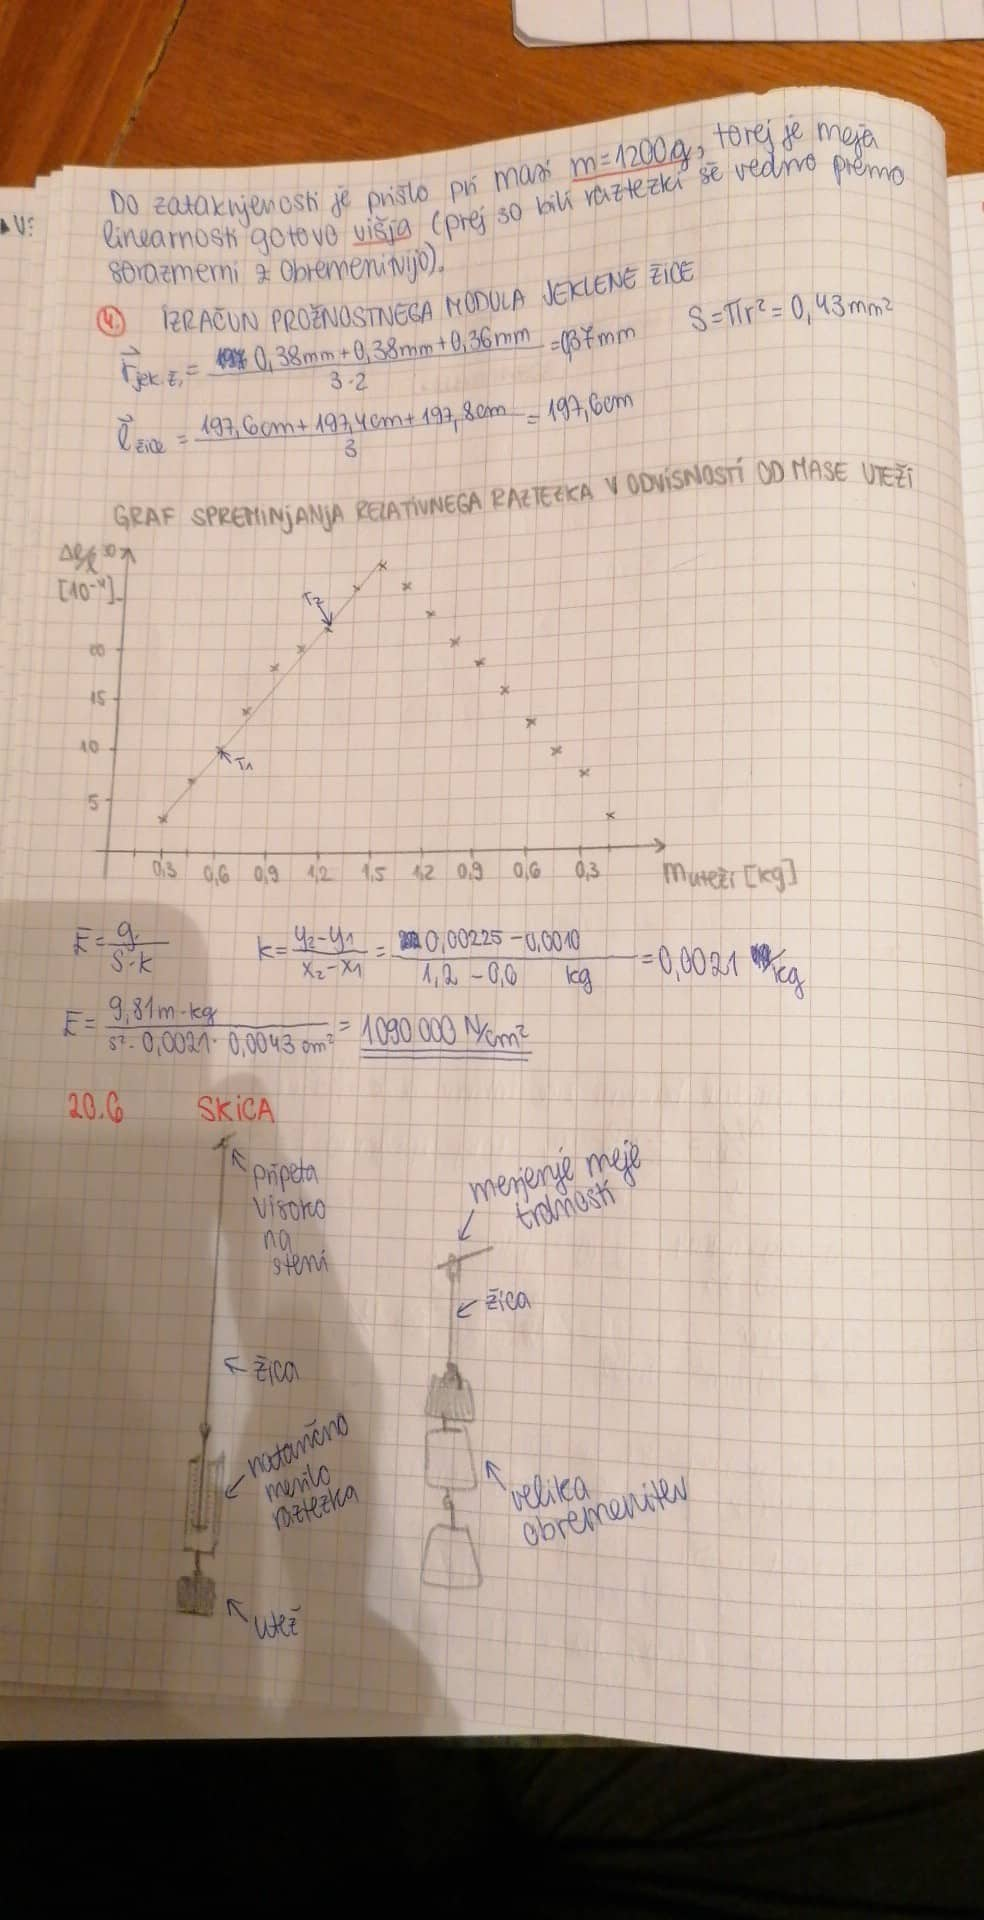 Do zataknjenosti je prišlo pri masi m=1200g, torej je meja
linearnosti gotovo višja (prej so bili raztezki še vedno premo
sorazmerni z obremenitvijo).
4. IZRAČUN PROŽNOSTNEGA MODULA JEKLENE ŽICE
r jek.ž. = 0,38mm+0,38mm+0,36mm / 3·2 = 0,37mm S=πr²=0,43mm²
l žice = 197,6cm+197,4cm+197,8cm / 3 = 197,6cm
GRAF SPREMINJANJA RELATIVNEGA RAZTEZKA V ODVISNOSTI OD MASE UTEŽI
Δl/l
[10⁻⁴]
T2
15
10
T1
5
0,3 0,6 0,9 1,2 1,5 1,2 0,9 0,6 0,3 m uteži [kg]
E = g / S·k k = y2-y1 / x2-x1 = 0,00225-0,0010 / 1,2-0,6 kg = 0,0021 /kg
E = 9,81m·kg / s²·0,0021·0,0043cm² = 1090 000 N/cm²
20.6 SKICA
pripeta
visoko
na
steni
merjenje meje
trdnosti
žica
žica
natančno
merilo
raztezka
velika
obremenitev
utež